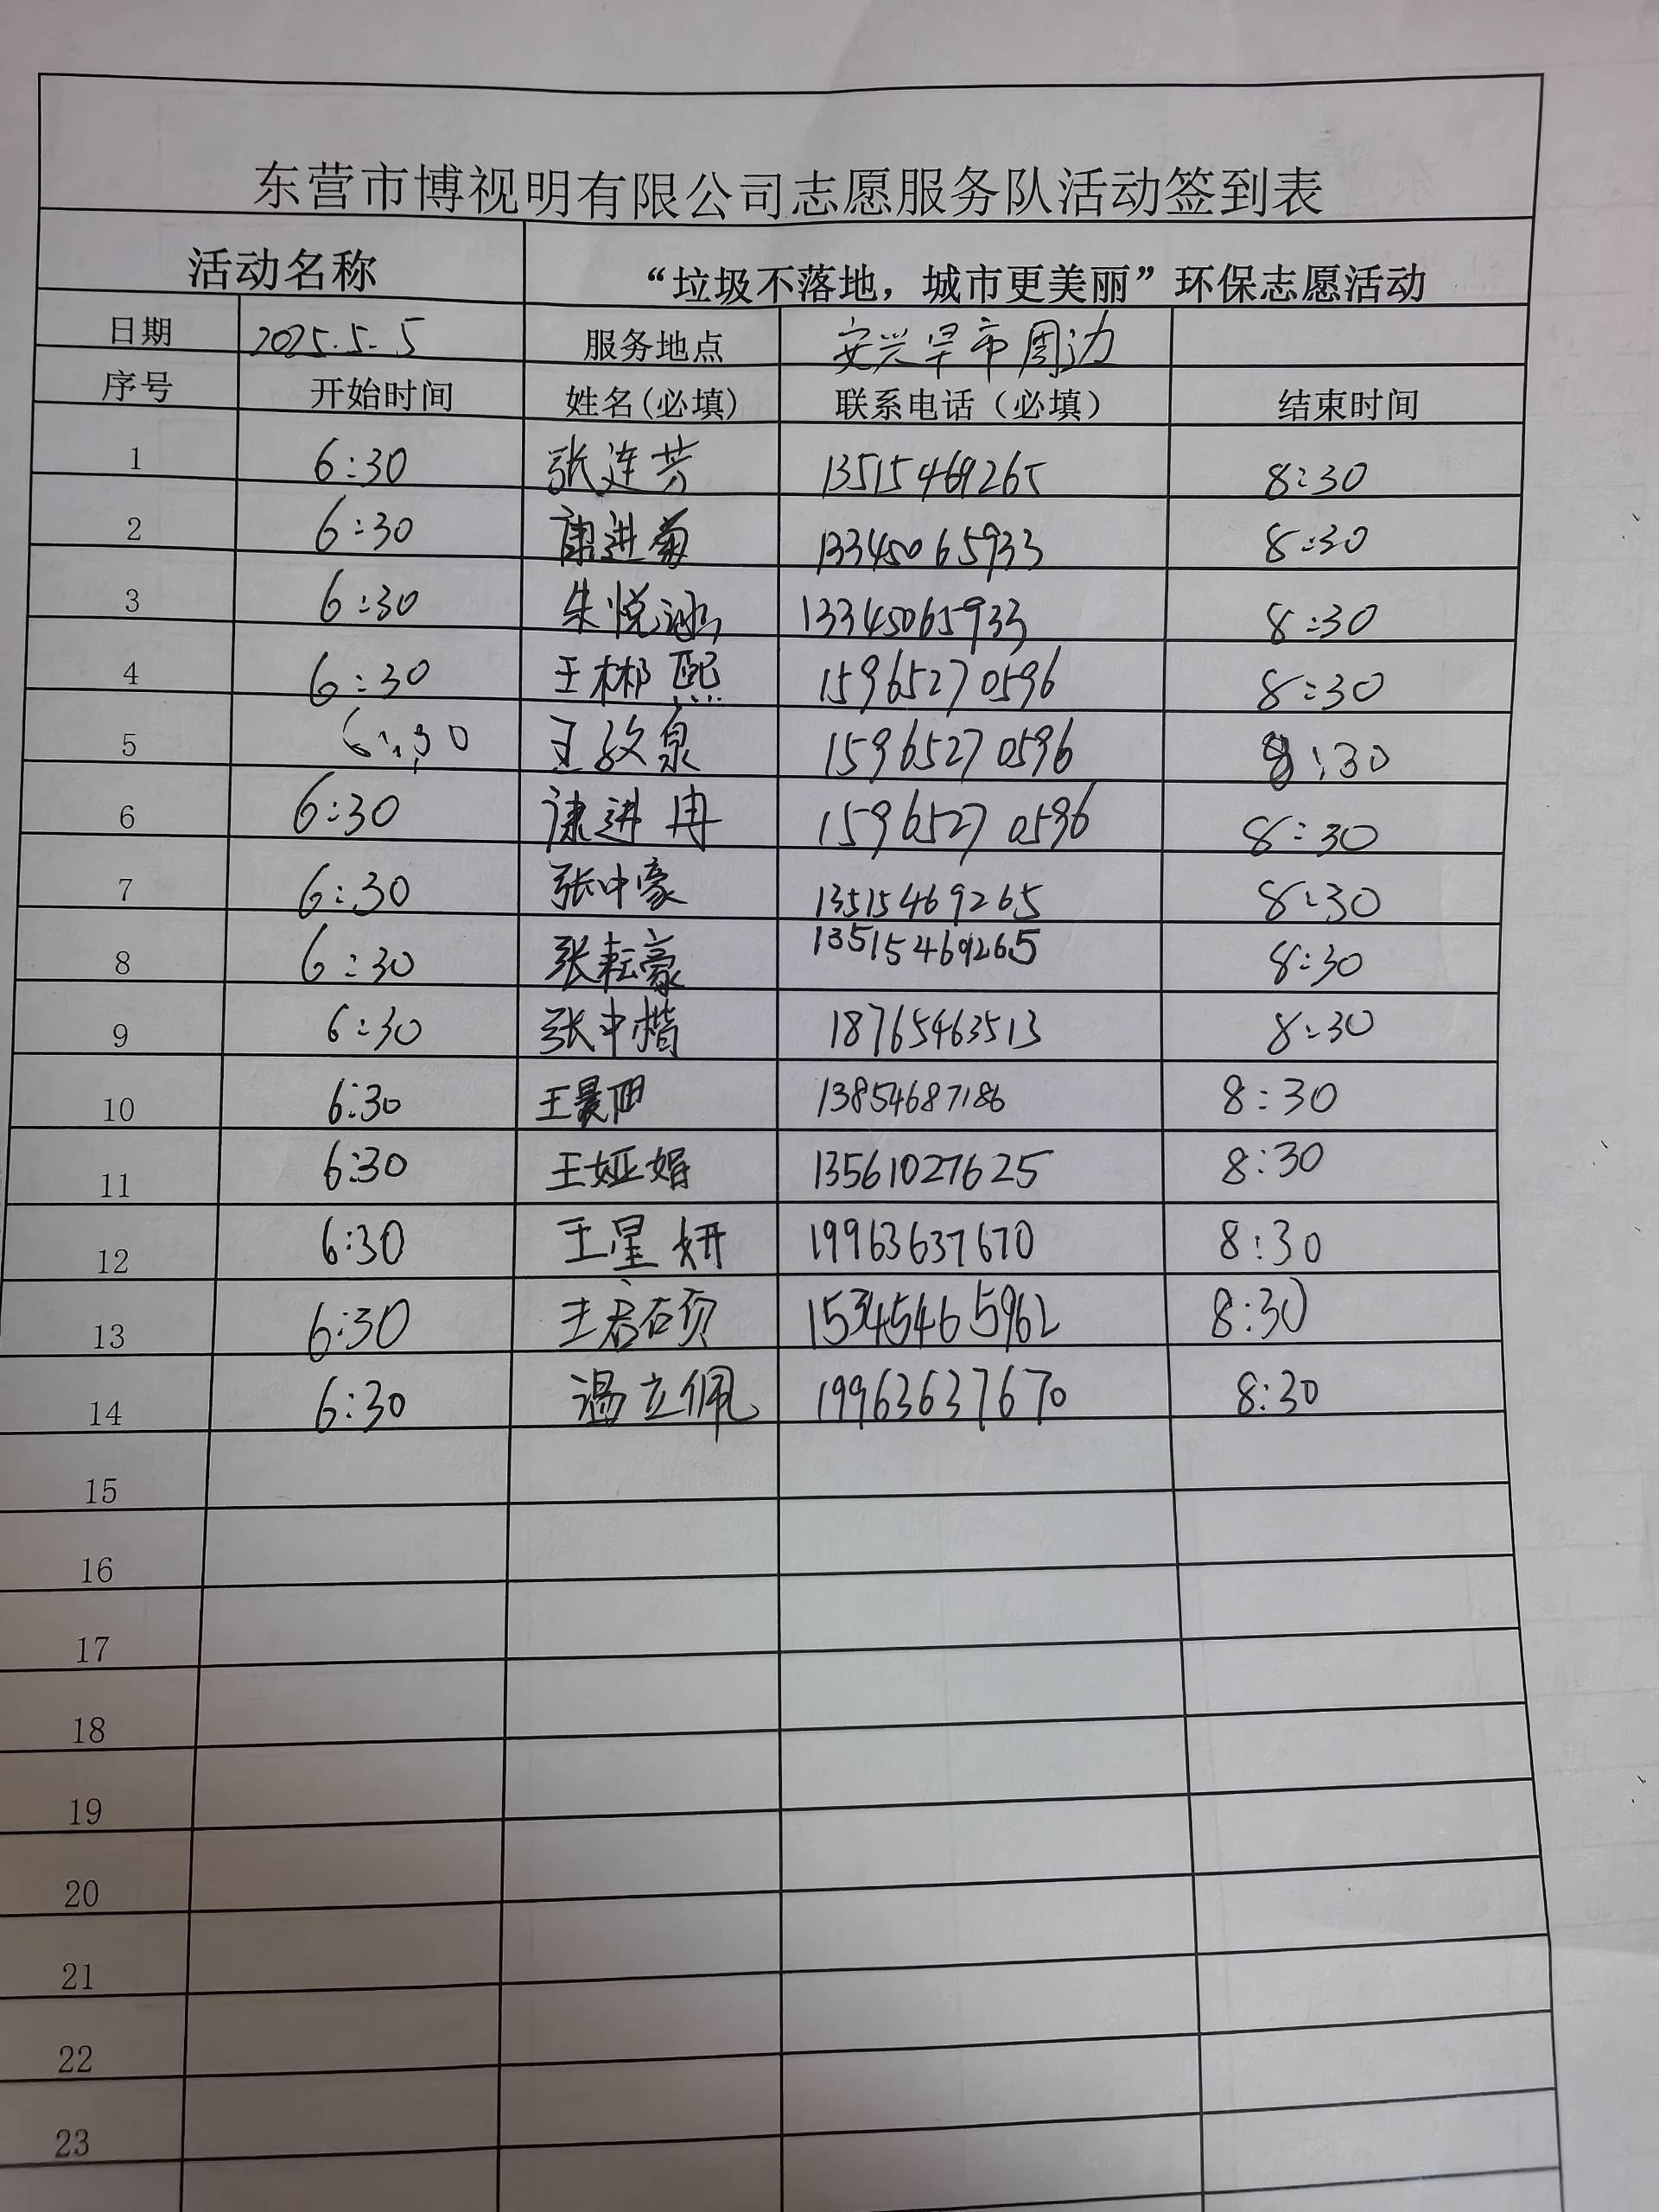 东营市博视明有限公司志愿服务队活动签到表
活动名称 “垃圾不落地，城市更美丽”环保志愿活动
日期 2025.5.5 服务地点 安兴早市周边
序号 开始时间 姓名(必填) 联系电话（必填） 结束时间
1 6:30 张连芳 13515469265 8:30
2 6:30 康进菊 13345065933 8:30
3 6:30 朱悦涵 13345065933 8:30
4 6:30 王彬熙 15965270596 8:30
5 6:30 王 泉 15965270596 8:30
6 6:30 康进冉 15965270596 8:30
7 6:30 张中豪 13515469265 8:30
8 6:30 张耘豪 13515469265 8:30
9 6:30 张中楷 18765463513 8:30
10 6:30 王晨阳 13854687186 8:30
11 6:30 王娅娟 13561027625 8:30
12 6:30 王星妍 19963637670 8:30
13 6:30 王君硕 15345465962 8:30
14 6:30 温立佩 19963637670 8:30
15
16
17
18
19
20
21
22
23